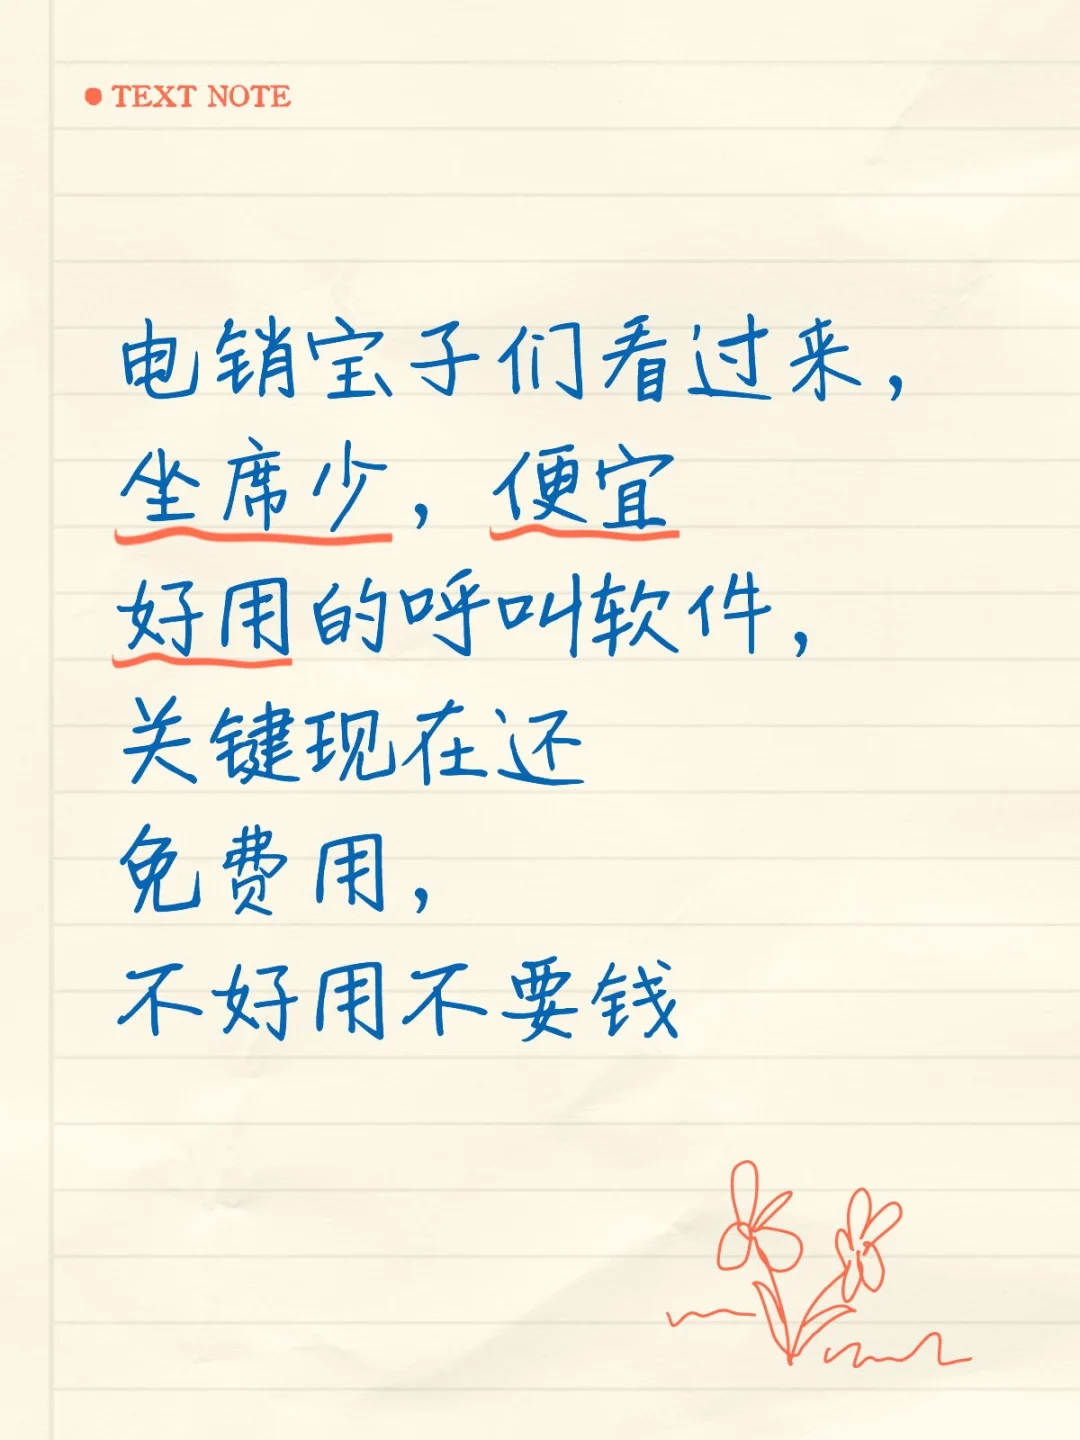 TEXT NOTE
电销宝子们看过来，
坐席少，便宜
好用的呼叫软件，
关键现在还
免费用，
不好用不要钱